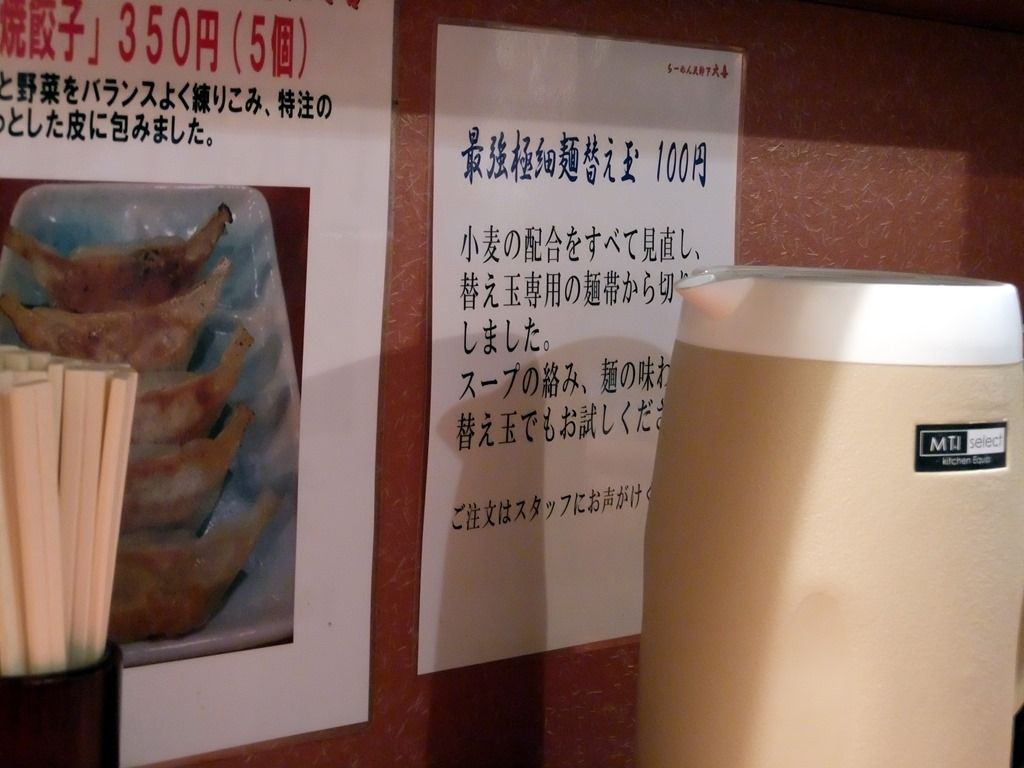 焼餃子」350円(5個)
と野菜をバランスよく練りこみ、特注の
っとした皮に包みました。
らーめん天神下大喜
最強極細麺替え玉 100円
小麦の配合をすべて見直し、
替え玉専用の麺帯から切
しました。
スープの絡み、麺の味わ
替え玉でもお試しくださ
ご注文はスタッフにお声がけく
MTI select
kitchen Equip